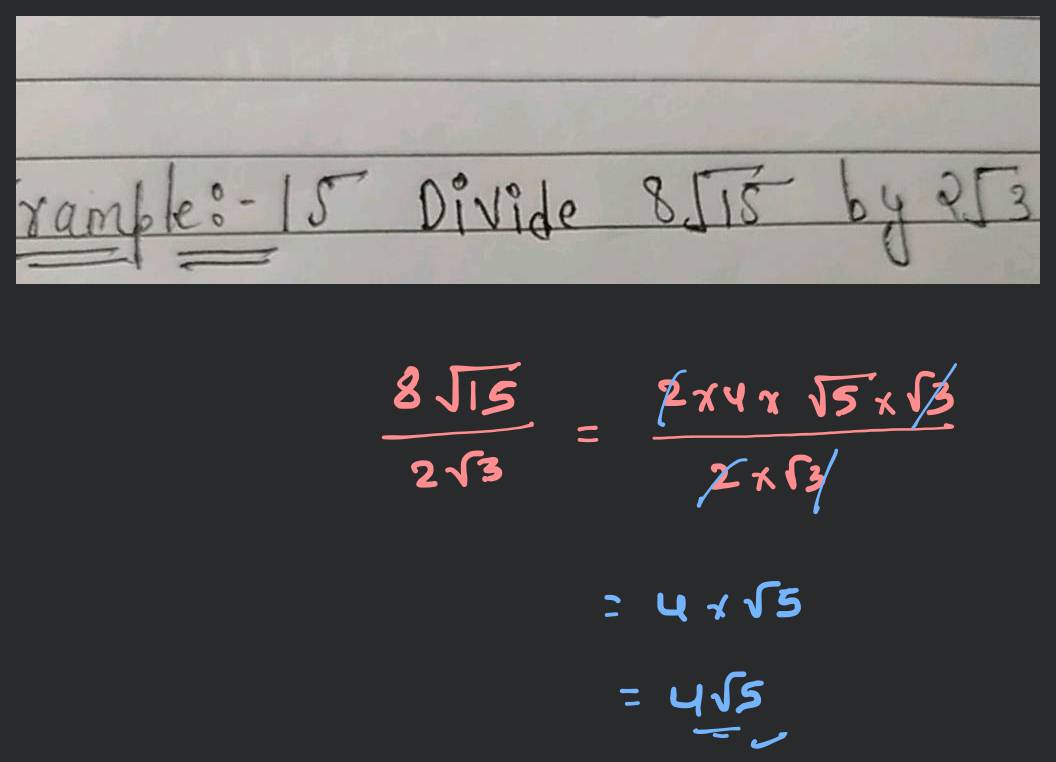 xample:- 15 Divide 8√15 by 2√3
8√15 / 2√3 = 2 x 4 x √5 x √3 / 2 x √3
= 4 x √5
= 4√5